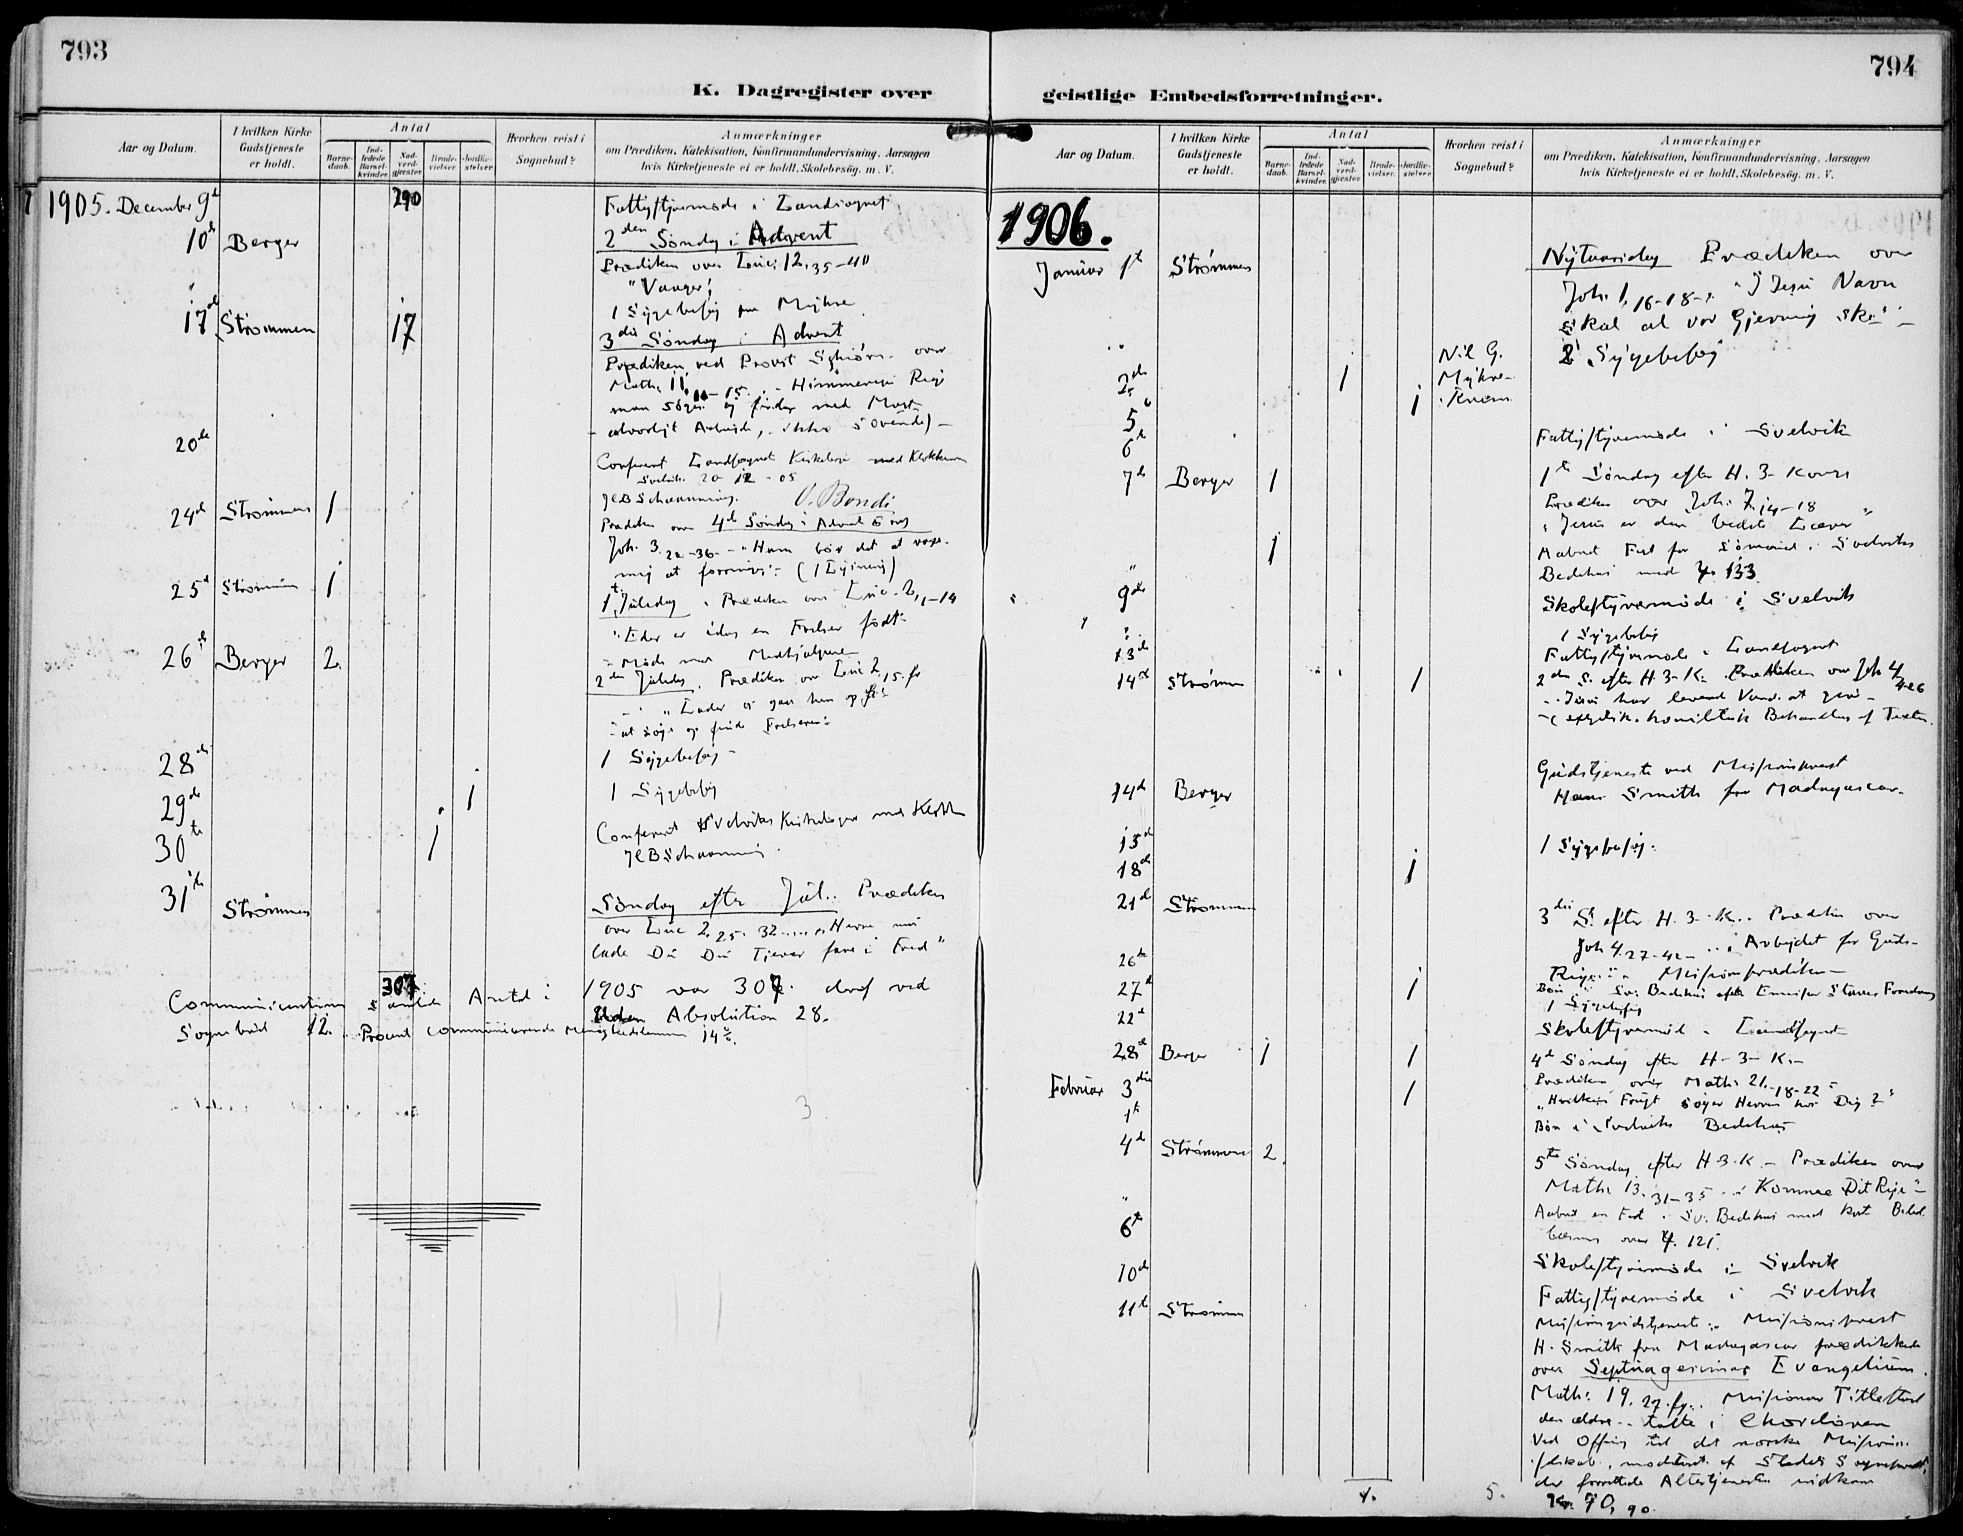 793
K. Dagregister over
Aar og Datum.
I hvilken Kirke Gudstjeneste er holdt.
Antal
Barnedaab.
Indledede Barselkvinder.
Nadverdgjæster.
Brudevielser.
Jordfæstelser.
Hvorhen reist i Sognebud?
Anmærkninger
om Prædiken, Katekisation, Konfirmandundervisning. Aarsagen
hvis Kirketjeneste ei er holdt. Skolebesøg. m. V.
1905. December 9d 290 Fattigstyremøde i Landsognet
10de Berger 2den Søndag i Advent
Prædiken over Luc. 12, 35-40
"Vaager!
1 Sygebesøg paa Myhre
17de Strømmen 17 3die Søndag i Advent
Prædiken ved Provst over
Math. 11, 11-15. Himmerigs Rig
man søger og finder med
alvorligt Arbeide,
20de
Conferert Landsognets Kirkebog med Klokkeren
Svelvik 20-12-05
O. Bondi
24de Strømmen 1 Prædiken over 4de Søndag i Advent
Joh. 3. -36. "Ham bør det at voxe
mig at forringes" (1 Lysning)
25d Strømmen 1 1te Juledag. Prædiken over Luc. 2, 1-14
"Eder er idag en Frelser født"
Møde med Medhjælperne
26de Berger 2. 2den Juledag. Prædiken over Luc 2, 15. fr
"Lader os gaa hen og
at søge og finde Frelseren"
28de 1 Sygebesøg
29de 1 1 Sygebesøg
30te 1 Conferert Svelviks Kirkebøger med Klokk
31te Strømmen Søndag efter Jul. Prædiken
over Luc 2, 25-32. Herre nu
lade Du Din Tjener fare i Fred"
307
Communicanternes samlede Antal i 1905 var 307. deraf ved
uden Absolution 28.
Sognebud 12. Procent communicerende 14%.
794
geistlige Embedsforretninger.
Aar og Datum.
I hvilken Kirke Gudstjeneste er holdt.
Antal
Barnedaab.
Indledede Barselkvinder.
Nadverdgjæster.
Brudevielser.
Jordfæstelser.
Hvorhen reist i Sognebud?
Anmærkninger
om Prædiken, Katekisation, Konfirmandundervisning. Aarsagen
hvis Kirketjeneste ei er holdt. Skolebesøg. m. V.
1906.
Januar 1te Strømmen Nytaarsdag Prædiken over
Joh. 1, 16-18. "I Jesu Navn
skal al vor Gjerning ske"
2 Sygebesøg
2de 1 Nil G. Myhre
5te 1
6te Fattigstyremøde i Svelvik
7de Berger 1 1te Søndag efter H. 3 Konger
Prædiken over Joh. 7, 14-18
"Jesus er den bedste Lærer"
1 Aabnet Fest for Sømænd i Svelviks
Bedehus med 133
9de Skolestyremøde i Svelvik
1 Sygebesøg
13de Fattigstyremøde i Landsognet
14de Strømm 1 2den S. efter H-3-K. Prædiken over Joh 4, 4-26
Jesus har levende Vand at give
homiletisk Behandling af Texten.
14de Berger Gudstjeneste ved Missionsprest
Hans Smith fra Madagascar.
15de 1 Sygebesøg.
18de 1
21de Strømmen 3die S. efter H. 3. K. Prædiken over
Joh 4, 27-42 "i Arbejdet for Guds
Rige" Missionsprædiken
26te Bøn i Sv. Bedehus efter Emissær Foredrag
27de 1 1 Sygebesøg
22de Skolestyremøde i Landsognet
28de Berger 1 1 4de Søndag efter H-3-K.
Prædiken over Math. 21, 18-22
"Hvilken Frugt søger Herren hos Dig?"
Februar 3die 1
1te Bøn i Svelviks Bedehus
4de Strømmen 2. 5te Søndag efter H.3.K. Prædiken over
Math. 13, 31-35. Komme Dit Rige"
Aabnet en Fest i Sv. Bedehus med kort Bibel
over 121.
6te Skolestyremøde i Svelvik
10de Fattigstyremøde i Svelvik
11te Strømmen Missionsgudstjeneste. Missionsprest
H. Smith fra Madagascar prædikede
over Septuagesimas Evangelium.
Math. 19. 27. fg. Missionær
den ældre talte i Chordøren
Ved Offring til det norske Missions
selskab, modtaget af Stedets Sogneprest,
der forrettede Altertjenesten indkom
Kr. 70,90.
4. 5.